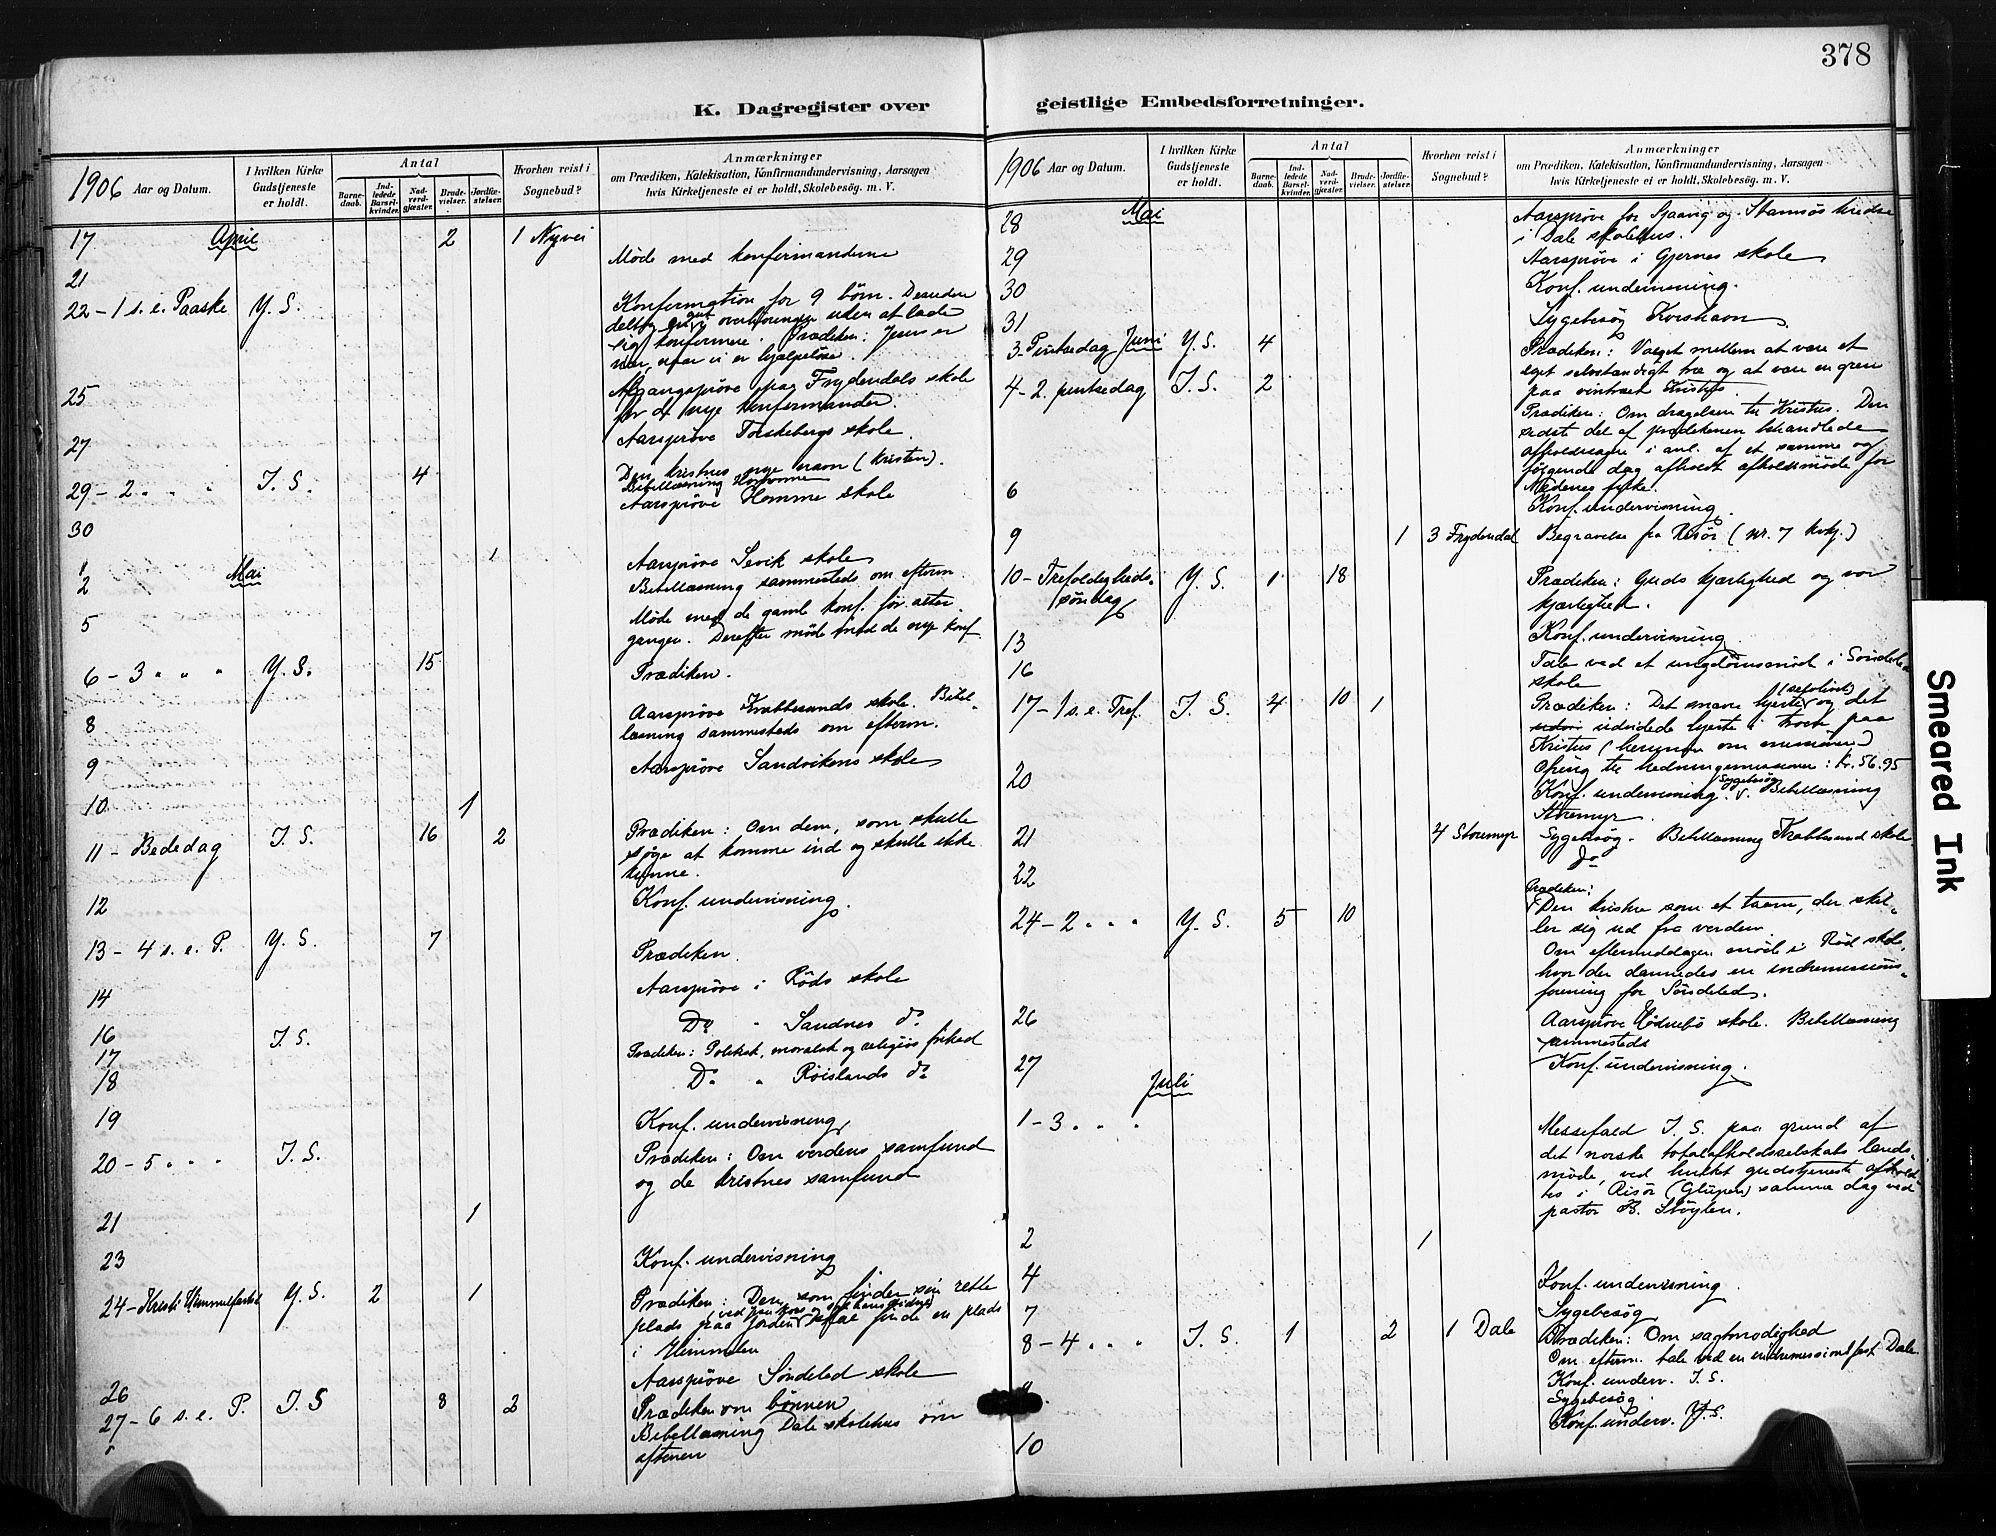 378
K. Dagregister over
geistlige Embedsforretninger.
1906 Aar og Datum.
I hvilken Kirke Gudstjeneste er holdt.
Antal
Barnedaab.
Indledede Barselkvinder.
Nadverdgjæster.
Brudevielser.
Jordfæstelser.
Hvorhen reist i Sognebud?
Anmærkninger
om Prædiken, Katekisation, Konfirmandundervisning, Aarsagen
hvis Kirketjeneste ei er holdt, Skolebesøg. m. V.
17 April 2 1 Nyvei
21 Møde med konfirmanderne
22 - 1 s. e. Paaske Y. S. Konfirmation for 9 børn. Desuden
uden at lade
sig konfirmere. Prædiken: Jesus er
nær, naar vi er hjælpeløse.
25 Afgangsprøve paa Frydendals skole
for de nye konfirmander.
27 Aarsprøve Torskebergs skole.
29 - 2 " " I. S. 4 Den kristnes nye navn (kristen).
Bibellæsning
30 Aarsprøve Homme skole
1 Mai 1 Aarsprøve Sevik skole
2 Bibellæsning sammesteds om efterm.
5 Møde med de gamle konf. før alter
gangen. Derefter møde med de nye konf.
6 - 3 " " " Y. S. 15 Prædiken.
8 Aarsprøve Krabbesunds skole. Bibel-
læsning sammesteds om efterm.
9 Aarsprøve Sandvikens skole
10 1
11 - Bededag I. S. 16 2 Prædiken: Om dem, som skulle
søge at komme ind og skulle ikke
kunne.
12 Konf. undervisning.
13 - 4 s. e. P. Y. S. 7 Prædiken.
14 Aarsprøve i Røds skole
16 Do " Sandnes do
17 I. S. Prædiken: Politisk, moralsk og religiøs frihed
18 Do " Røislands do
19 Konf. undervisning
20 - 5 " " " I. S. Prædiken: Om verdens samfund
og de kristnes samfund
21 1
23 Konf. undervisning
24 - Kristi Himmelfartsd Y. S. 2 1 Prædiken: Den, som finder sin rette
plads paa jorden skal finde en plads
i Himmelen
26 Aarsprøve Søndeled skole
27 - 6 s. e. P. I. S 8 2 Prædiken om bønnen
Bibellæsning Dale skolehus om
aftenen
1906 Aar og Datum.
I hvilken Kirke Gudstjeneste er holdt.
Antal
Barnedaab.
Indledede Barselkvinder.
Nadverdgjæster.
Brudevielser.
Jordfæstelser.
Hvorhen reist i Sognebud?
Anmærkninger
om Prædiken, Katekisation, Konfirmandundervisning, Aarsagen
hvis Kirketjeneste ei er holdt, Skolebesøg. m. V.
28 Mai Aarsprøve for Sjaavig og Stamsøs kredse
i Dale skolehus.
29 Aarsprøve i Gjernes skole
30 Konf. undervisning.
31 Sygebesøg Korshavn
3 - Pintsedag Juni Y. S. 4 Prædiken: Valget mellem at være et
eget selvstændigt træ og at være en gren
paa vintræet Kristus
4 - 2. pintsedag I. S. 2 Prædiken: Om dragelsen til Kristus. Den
sidste del af prædikenen behandlede
afholdssagen i anl. af et samme og
følgende dag afholdt afholdsmøde for
Nedenes fylke.
6 Konf. undervisning.
9 1 3 Frydendal Begravelse fra Risør (nr. 7 kvkj.)
10 - Trefoldigheds-
søndag Y. S. 1 18 Prædiken: Guds kjærlighed og vor
kjærlighed.
13 Konf. undervisning
16 Tale ved et ungdomsmøde i Søndeled
skole
17 - 1 s. e. Tref. I. S. 4 10 1 Prædiken: Det snare hjerte og det
udvidede hjerte i troen paa
Kristus (herunder om missionen)
Ofring til hedningemissionen: kr. 56.95
20 Konf. undervisning. Sygebesøg v. Bibellæsning
Storemyr.
21 4 Storemyr Sygebesøg. Bibellæsning Krabbesund skole
22 Do
24 - 2 " " Y. S. 5 10 Prædiken:
Den kristne som et tegn, der skil-
ler sig ud fra verden.
Om eftermiddagen møde i Rød skole,
hvor der dannedes en indremissions-
forening for Søndeled.
26 Aarsprøve Hødnebø skole. Bibellæsning
sammesteds
27 Konf. undervisning.
Juli
1 - 3 " " Messefald I. S. paa grund af
det norske totalafholdsselskabs lands-
møde, ved hvilket gudstjeneste afhold-
tes i Risør (Glupen) samme dag ved
pastor B. Støylen.
2 1
4 Konf. undervisning
7 Sygebesøg
8 - 4 " " I. S. 1 2 1 Dale Prædiken: Om sagtmodighed
Om efterm. tale ved en indremissionsfest Dale
Konf. underv. I. S.
9 Sygebesøg
10 Konf. underv. Y. S.
Smeared Ink